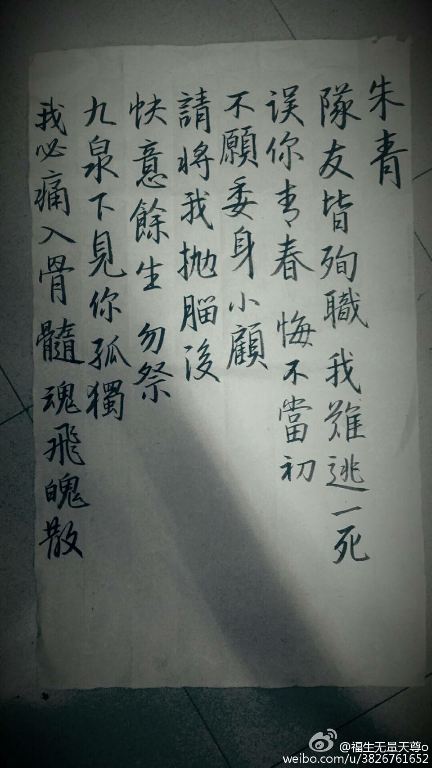 朱青
隊友皆殉職 我難逃一死
误你青春 悔不當初
不願委身小顧
請將我抛腦後
快意餘生 勿祭
九泉下見你孤獨
我必痛入骨髓魂飛魄散
@福生无量天尊o
weibo.com/u/3826761652